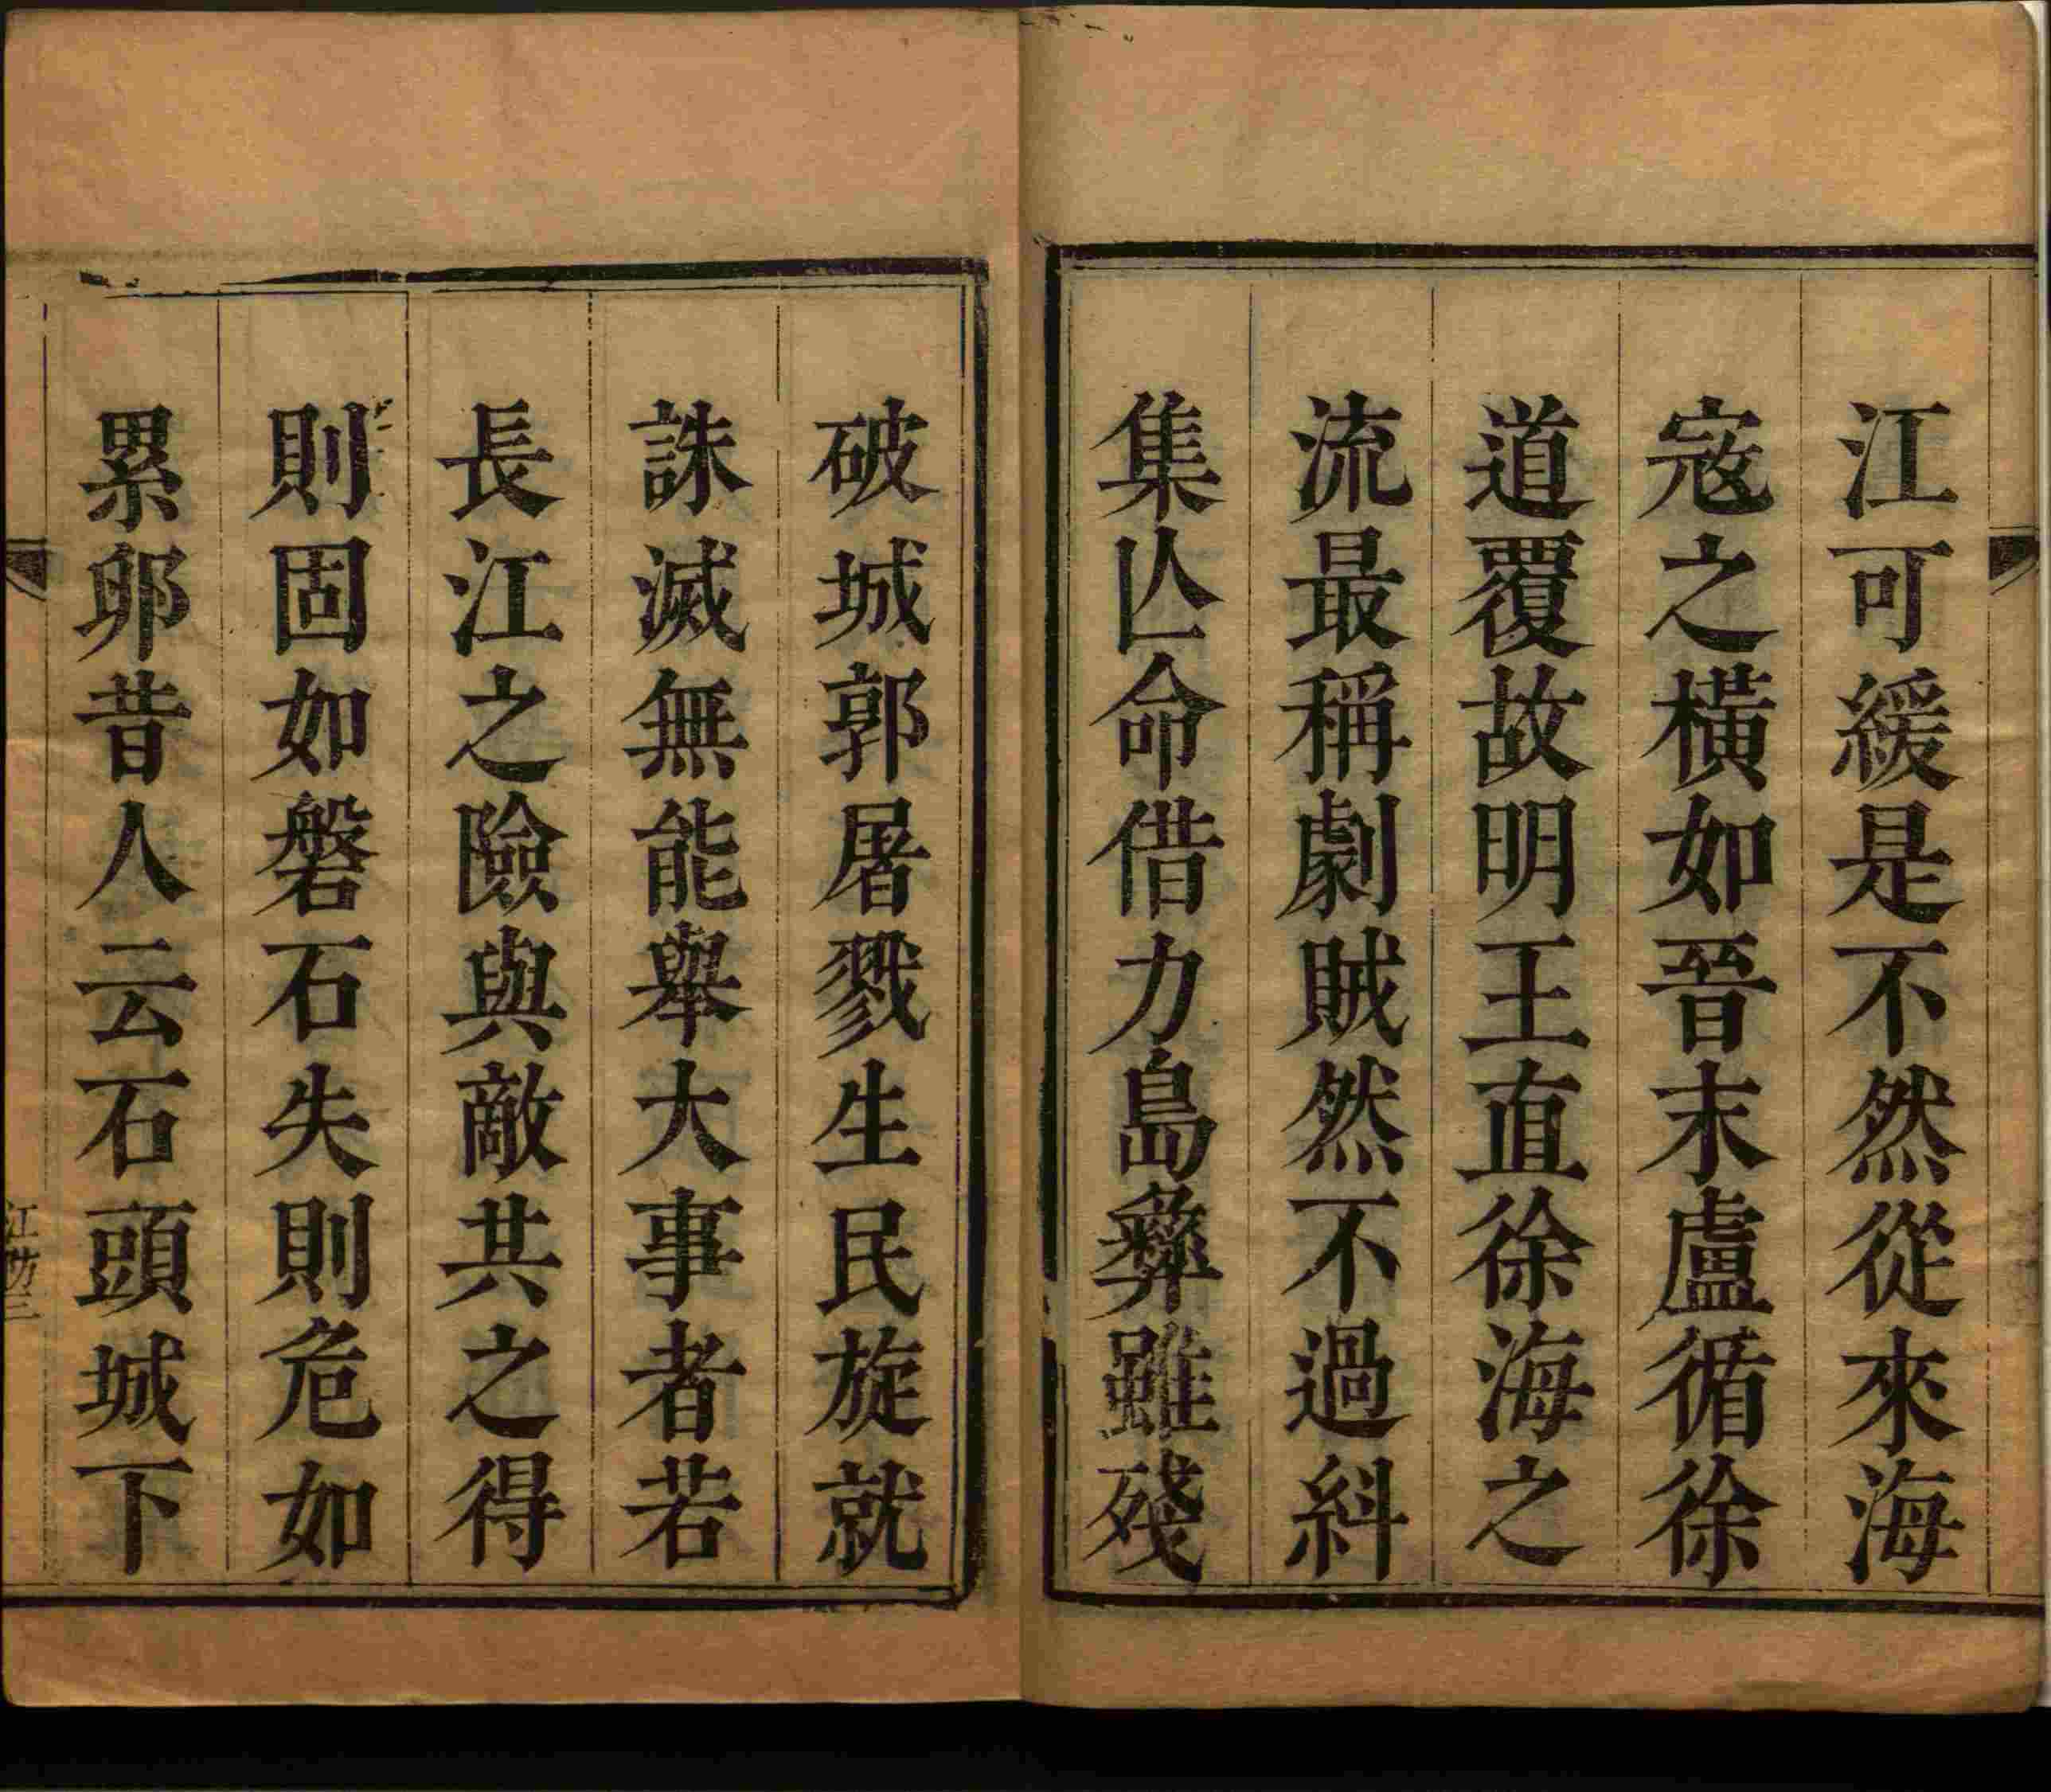 江可緩是不然從來海
寇之橫如晉末盧循徐
道覆故明王直徐海之
流最稱劇賊然不過糾
集亾命借力島彝雖殘
破城郭屠戮生民旋就
誅滅無能舉大事者若
長江之險與敵共之得
則固如磐石失則危如
累卵昔人云石頭城下
江防三